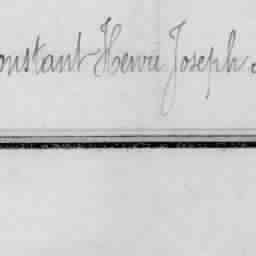 onstant Henri Joseph